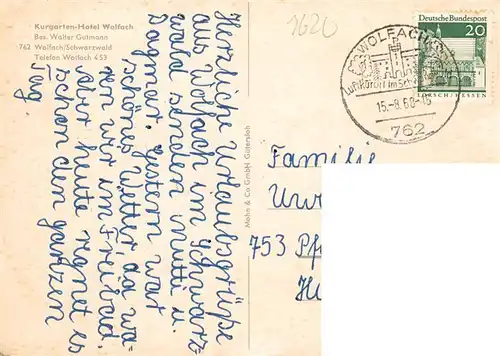 Kurgarten-Hotel Wolfach
Bes. Walter Gutmann
762 Wolfach/Schwarzwald
Telefon Wolfach 453
Herzliche Urlaubsgrüße
aus Wolfach im Schwarz-
wald senden Mutti u.
Dagmar. Gestern war
schönes Wetter, da wa-
ren wir im Freibad.
Aber heute regnet es
schon den ganzen
Tag.
Mohn & Co GmbH Gütersloh
1620
WOLFACH
LUFTKURORT IM
15.-8.68-18
762
Deutsche Bundespost
20
LORSCH/HESSEN
Familie
753